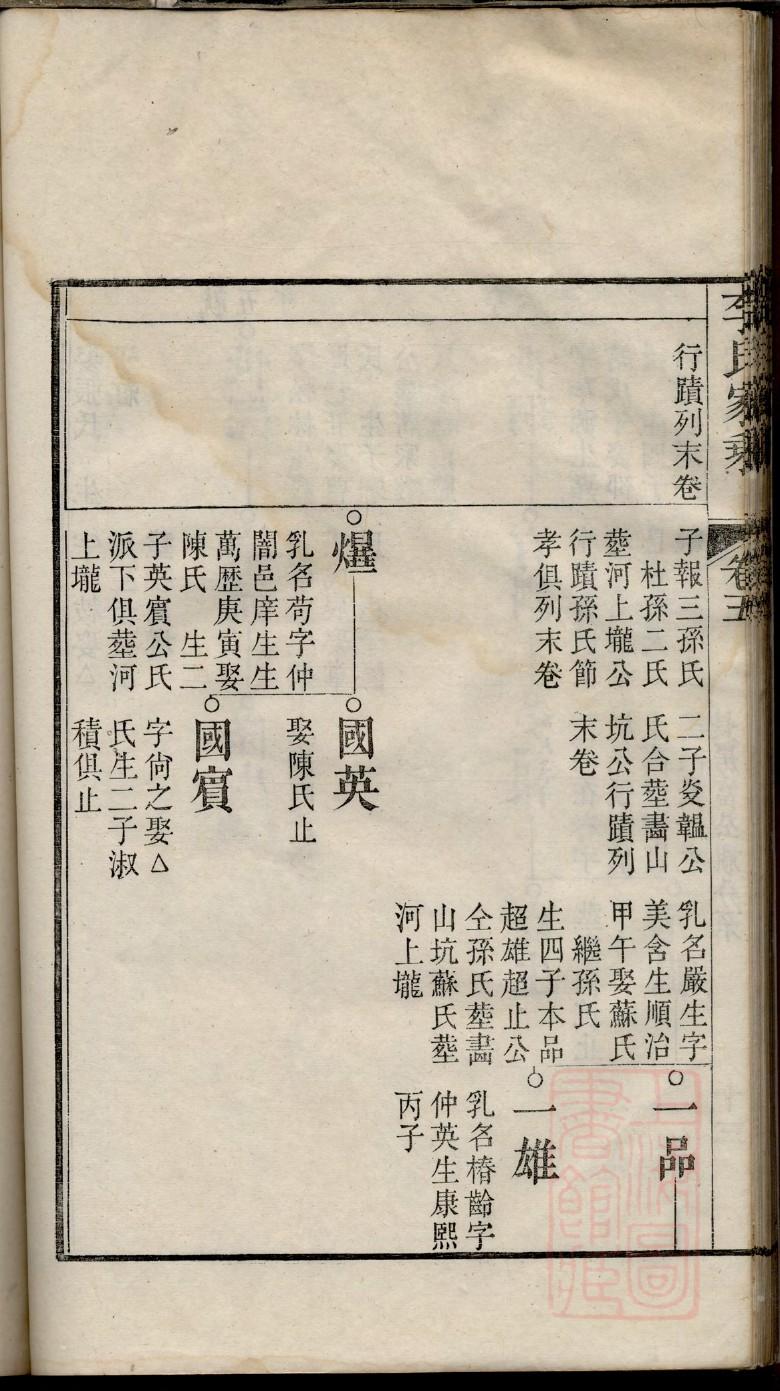 李氏家乘
卷五
行蹟列末卷
子報三孫氏
杜孫二氏
塟河上壠公
行蹟孫氏節
孝俱列末卷
二子炱韞公
氏合塟畵山
坑公行蹟列
末卷
乳名嚴生字
美含生順治
甲午娶蘇氏
繼孫氏
生四子本品
超雄超止公
仝孫氏塟畵
山坑蘇氏塟
河上壠
一品
一雄
乳名椿齡字
仲英生康熙
丙子
爗
乳名苟字仲
闇邑庠生生
萬歷庚寅娶
陳氏 生二
子英賔公氏
派下俱塟河
上壠
國英
娶陳氏止
國賔
字尙之娶△
氏生二子淑
積俱止